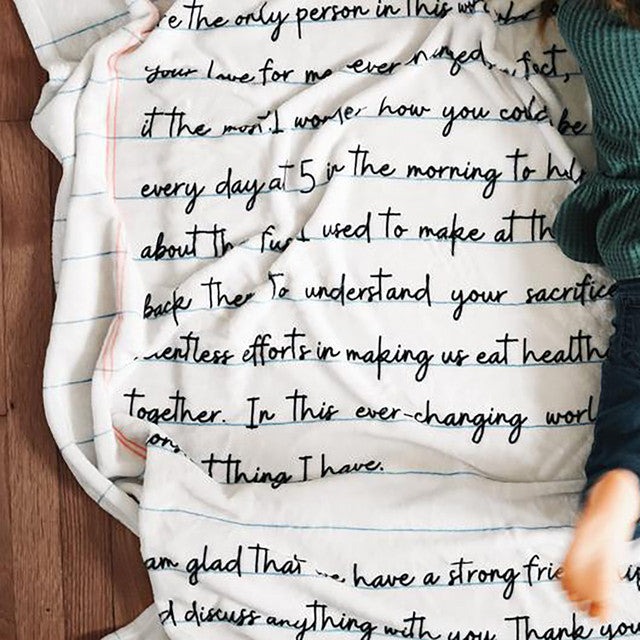 the only person in this
your love for me ever
it the how you could be
every day at 5 in the morning to
about used to make at
back to understand your sacrifice
efforts in making us eat
together. In this ever-changing
thing I have.
am glad that have a strong
discuss anything with you. Thank you